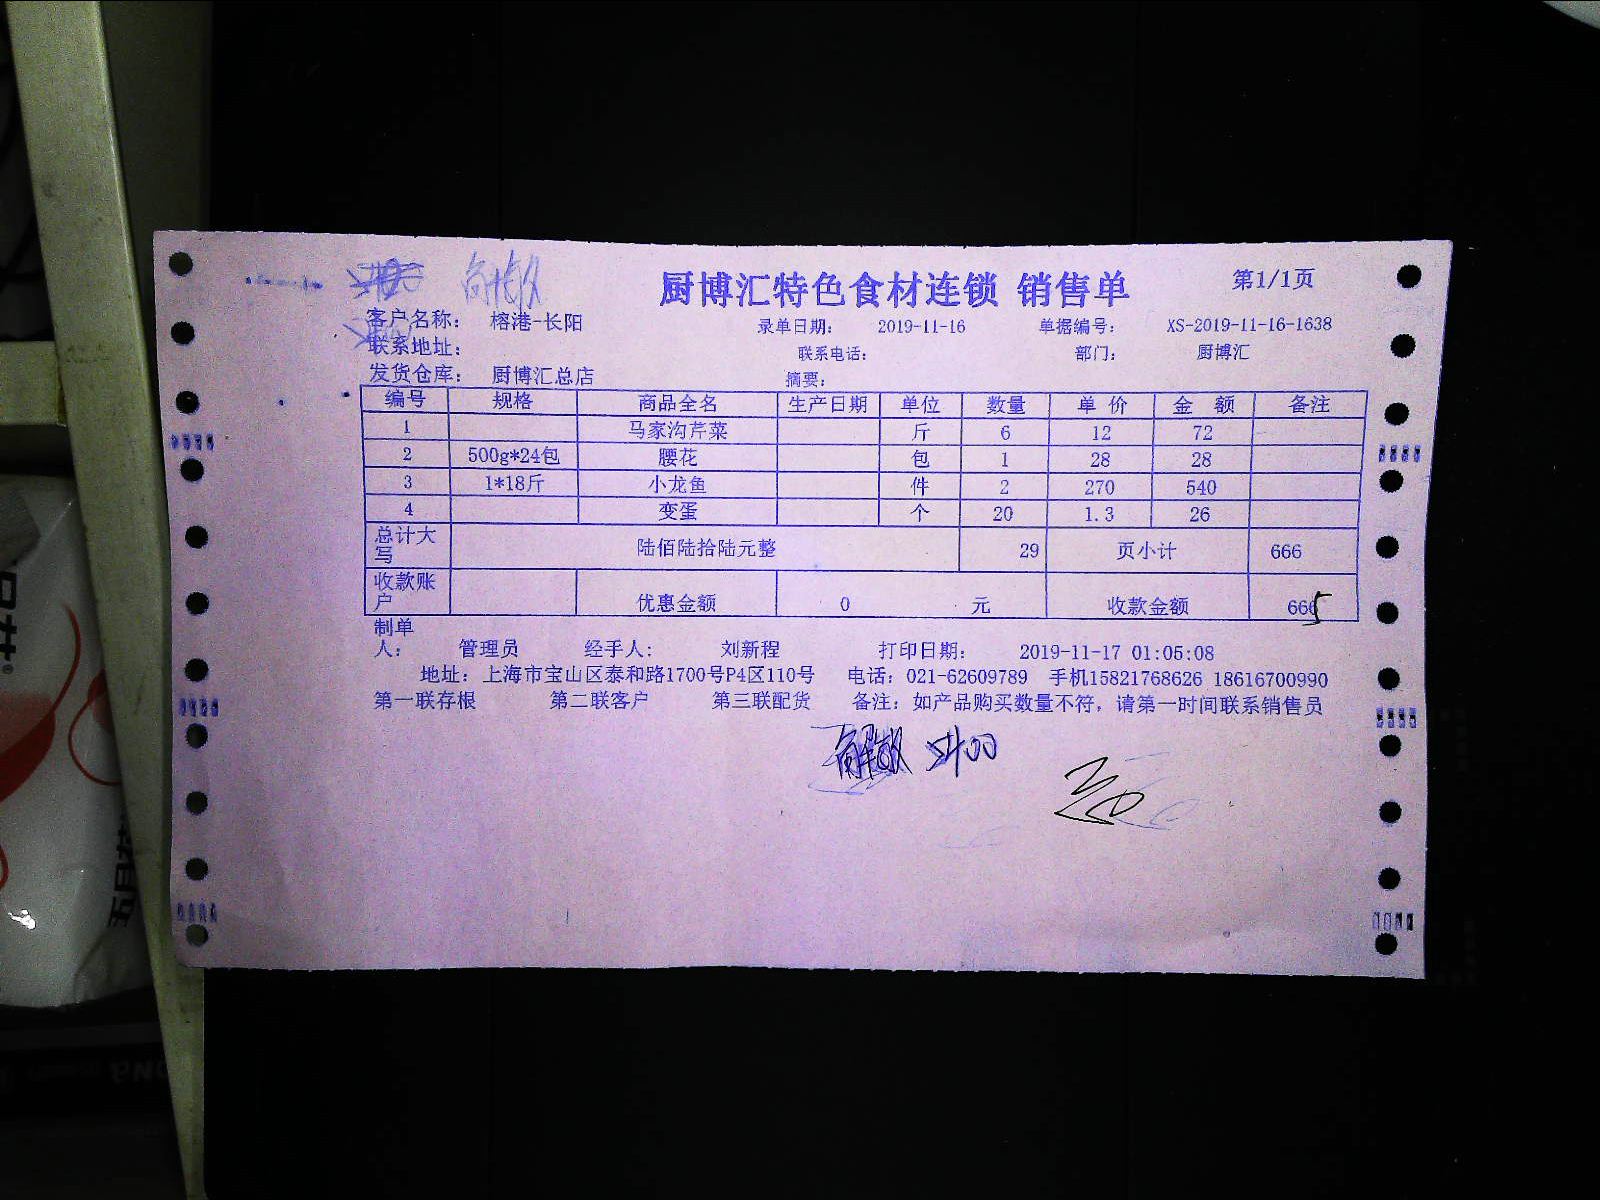 厨博汇特色食材连锁 销售单 第1/1页
客户名称： 榕港-长阳 录单日期： 2019-11-16 单据编号： XS-2019-11-16-1638
联系地址： 联系电话： 部门： 厨博汇
发货仓库： 厨博汇总店 摘要：
编号 规格 商品全名 生产日期 单位 数量 单 价 金 额 备注
1 马家沟芹菜 斤 6 12 72
2 500g*24包 腰花 包 1 28 28
3 1*18斤 小龙鱼 件 2 270 540
4 变蛋 个 20 1.3 26
总计大写 陆佰陆拾陆元整 29 页小计 666
收款账户 优惠金额 0 元 收款金额 665
制单人： 管理员 经手人： 刘新程 打印日期： 2019-11-17 01:05:08
地址：上海市宝山区泰和路1700号P4区110号 电话：021-62609789 手机15821768626 18616700990
第一联存根 第二联客户 第三联配货 备注：如产品购买数量不符，请第一时间联系销售员